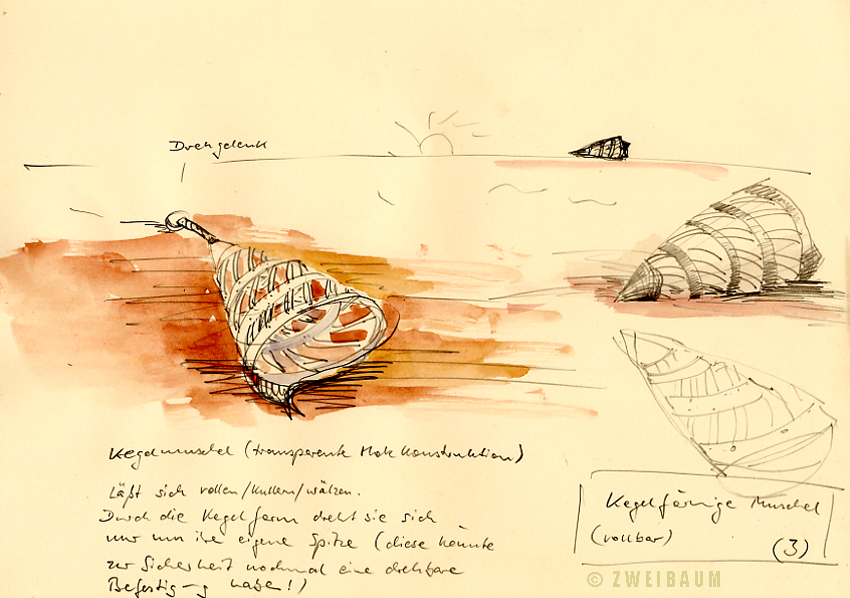 Drehgelenk
Kegelmuschel (transparente Holzkonstruktion)
Läßt sich rollen/kullern/wälzen.
Durch die Kegelform dreht sie sich
nur um ihre eigene Spitze (diese könnte
zur Sicherheit nochmal eine drehbare
Befestigung haben!)
Kegelförmige Muschel
(rollbar)
(3)
© ZWEIBAUM